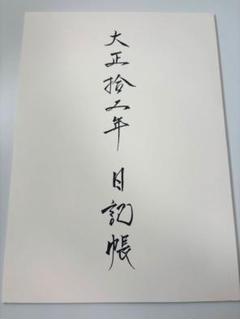 大正拾五年 日記帳